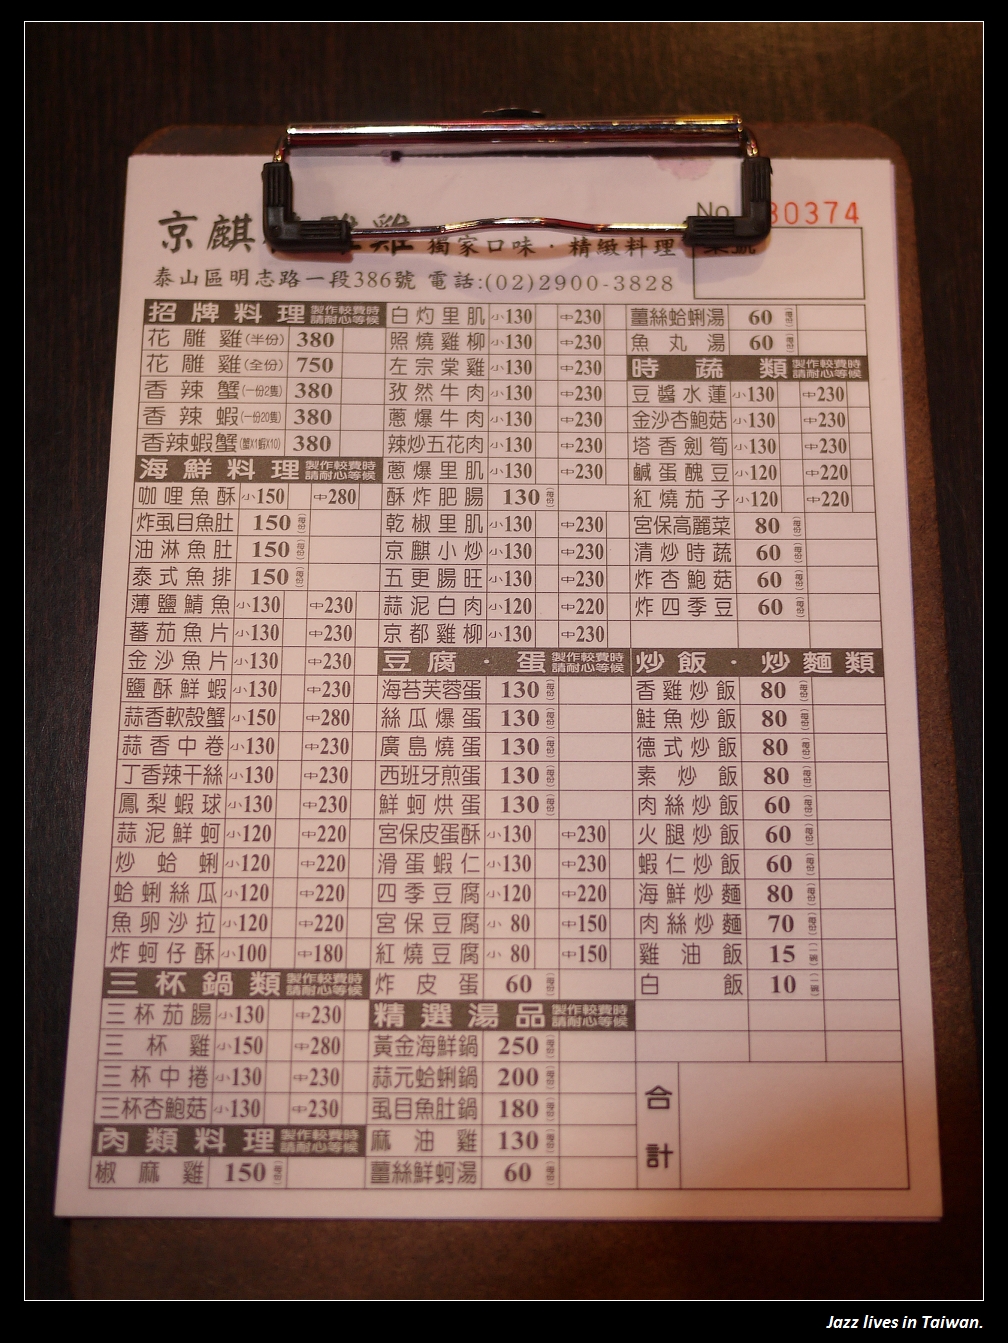 京麒 雕雞 獨家口味·精緻料理
No. 30374
桌號
泰山區明志路一段386號 電話:(02)2900-3828
招牌料理 製作較費時 請耐心等候
花雕雞(半份) 380
花雕雞(全份) 750
香辣蟹(一份2隻) 380
香辣蝦(一份20隻) 380
香辣蝦蟹(蟹X1蝦X10) 380
海鮮料理 製作較費時 請耐心等候
咖哩魚酥 小150 中280
炸虱目魚肚 150(每份)
油淋魚肚 150(每份)
泰式魚排 150(每份)
薄鹽鯖魚 小130 中230
蕃茄魚片 小130 中230
金沙魚片 小130 中230
鹽酥鮮蝦 小130 中230
蒜香軟殼蟹 小150 中280
蒜香中卷 小130 中230
丁香辣干絲 小130 中230
鳳梨蝦球 小130 中230
蒜泥鮮蚵 小120 中220
炒蛤蜊 小120 中220
蛤蜊絲瓜 小120 中220
魚卵沙拉 小120 中220
炸蚵仔酥 小100 中180
三杯鍋類 製作較費時 請耐心等候
三杯茄腸 小130 中230
三杯雞 小150 中280
三杯中捲 小130 中230
三杯杏鮑菇 小130 中230
肉類料理 製作較費時 請耐心等候
椒麻雞 150(每份)
白灼里肌 小130 中230
照燒雞柳 小130 中230
左宗棠雞 小130 中230
孜然牛肉 小130 中230
蔥爆牛肉 小130 中230
辣炒五花肉 小130 中230
蔥爆里肌 小130 中230
酥炸肥腸 130(每份)
乾椒里肌 小130 中230
京麒小炒 小130 中230
五更腸旺 小130 中230
蒜泥白肉 小120 中220
京都雞柳 小130 中230
豆腐·蛋 製作較費時 請耐心等候
海苔芙蓉蛋 130(每份)
絲瓜爆蛋 130(每份)
廣島燒蛋 130(每份)
西班牙煎蛋 130(每份)
鮮蚵烘蛋 130(每份)
宮保皮蛋酥 小130 中230
滑蛋蝦仁 小130 中230
四季豆腐 小120 中220
宮保豆腐 小80 中150
紅燒豆腐 小80 中150
炸皮蛋 60(每份)
精選湯品 製作較費時 請耐心等候
黃金海鮮鍋 250(每份)
蒜元蛤蜊鍋 200(每份)
虱目魚肚鍋 180(每份)
麻油雞 130(每份)
薑絲鮮蚵湯 60(每份)
薑絲蛤蜊湯 60(每份)
魚丸湯 60(每份)
時蔬類 製作較費時 請耐心等候
豆醬水蓮 小130 中230
金沙杏鮑菇 小130 中230
塔香劍筍 小130 中230
鹹蛋醜豆 小120 中220
紅燒茄子 小120 中220
宮保高麗菜 80(每份)
清炒時蔬 60(每份)
炸杏鮑菇 60(每份)
炸四季豆 60(每份)
炒飯·炒麵類
香雞炒飯 80(每份)
鮭魚炒飯 80(每份)
德式炒飯 80(每份)
素炒飯 80(每份)
肉絲炒飯 60(每份)
火腿炒飯 60(每份)
蝦仁炒飯 60(每份)
海鮮炒麵 80(每份)
肉絲炒麵 70(每份)
雞油飯 15(一碗)
白飯 10(一碗)
合計
Jazz lives in Taiwan.